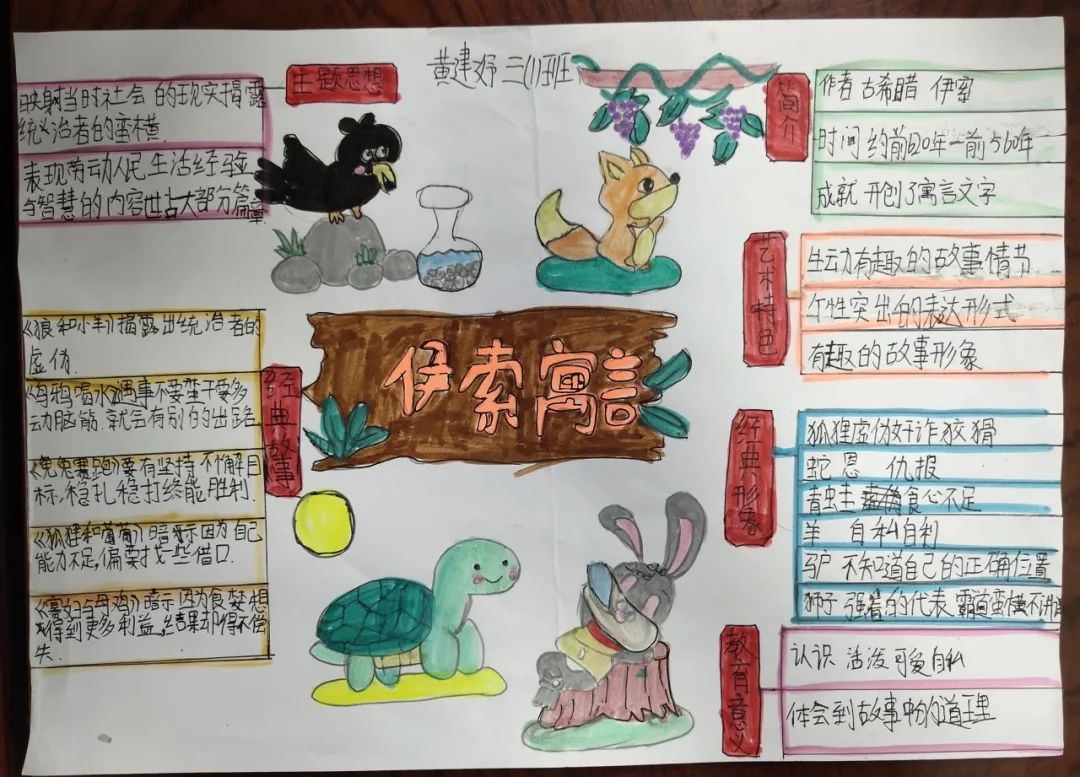 黄建妤 三(1)班
主题思想
映射当时社会的现实揭露
统治者的蛮横.
表现劳动人民生活经验
与智慧的内容占大部分篇章.
简介
作者 古希腊 伊索
时间 约前620年一前560年
成就 开创了寓言文字
艺术特色
生动有趣的故事情节
个性突出的表达形式
有趣的故事形象
伊索寓言
经典故事
《狼和小羊》揭露出统治者的
虚伪.
《乌鸦喝水》遇事不要蛮干要多
动脑筋.就会有别的出路
《龟兔赛跑》要有坚持不懈目
标,稳扎稳打终能胜利.
《狐狸和葡萄》暗示因为自己
能力不足,偏要找一些借口.
《寡妇与母鸡》暗示因为贪婪想
得到更多利益,结果却得不偿
失.
经典形象
狐狸虚伪奸诈狡猾
蛇 恩 仇报
青蛙 贪心不足
羊 自私自利
驴 不知道自己的正确位置
狮子 强者的代表 霸道蛮横不讲
教育意义
认识 活泼可爱自私
体会到故事中的道理